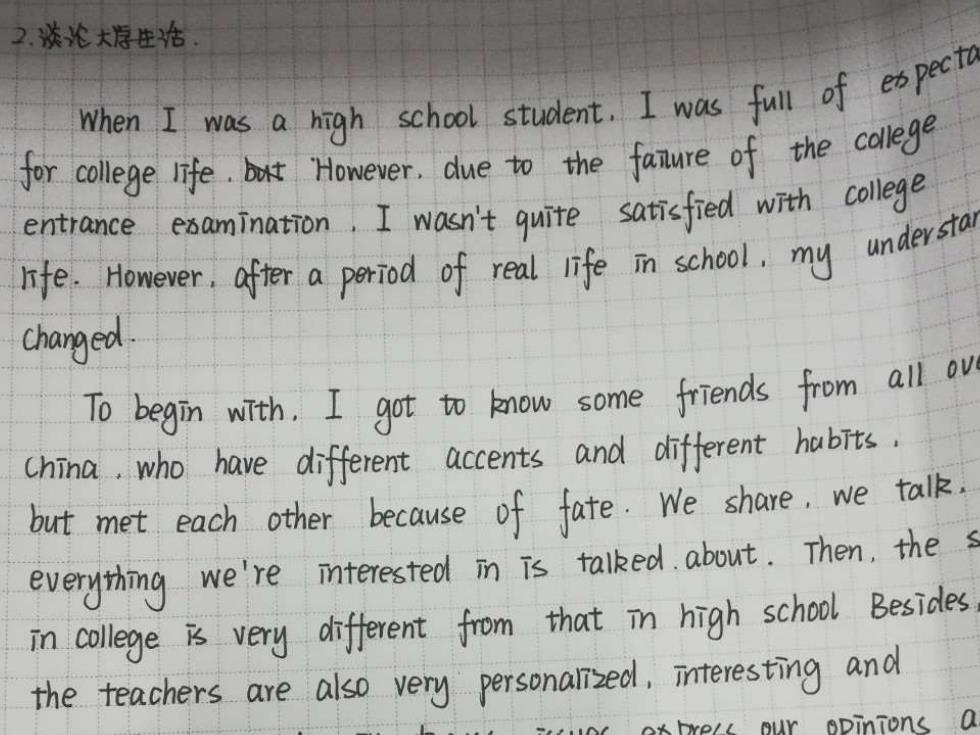 2.谈论大学生活.
When I was a high school student. I was full of expecta
for college life. but However. due to the failure of the college
entrance examination. I wasn't quite satisfied with college
life. However, after a period of real life in school. my understan
changed.
To begin with. I got to know some friends from all ove
China. who have different accents and different habits.
but met each other because of fate. We share. we talk.
everything we're interested in is talked about. Then, the s
in college is very different from that in high school Besides,
the teachers are also very personalized. interesting and
express our opinions a